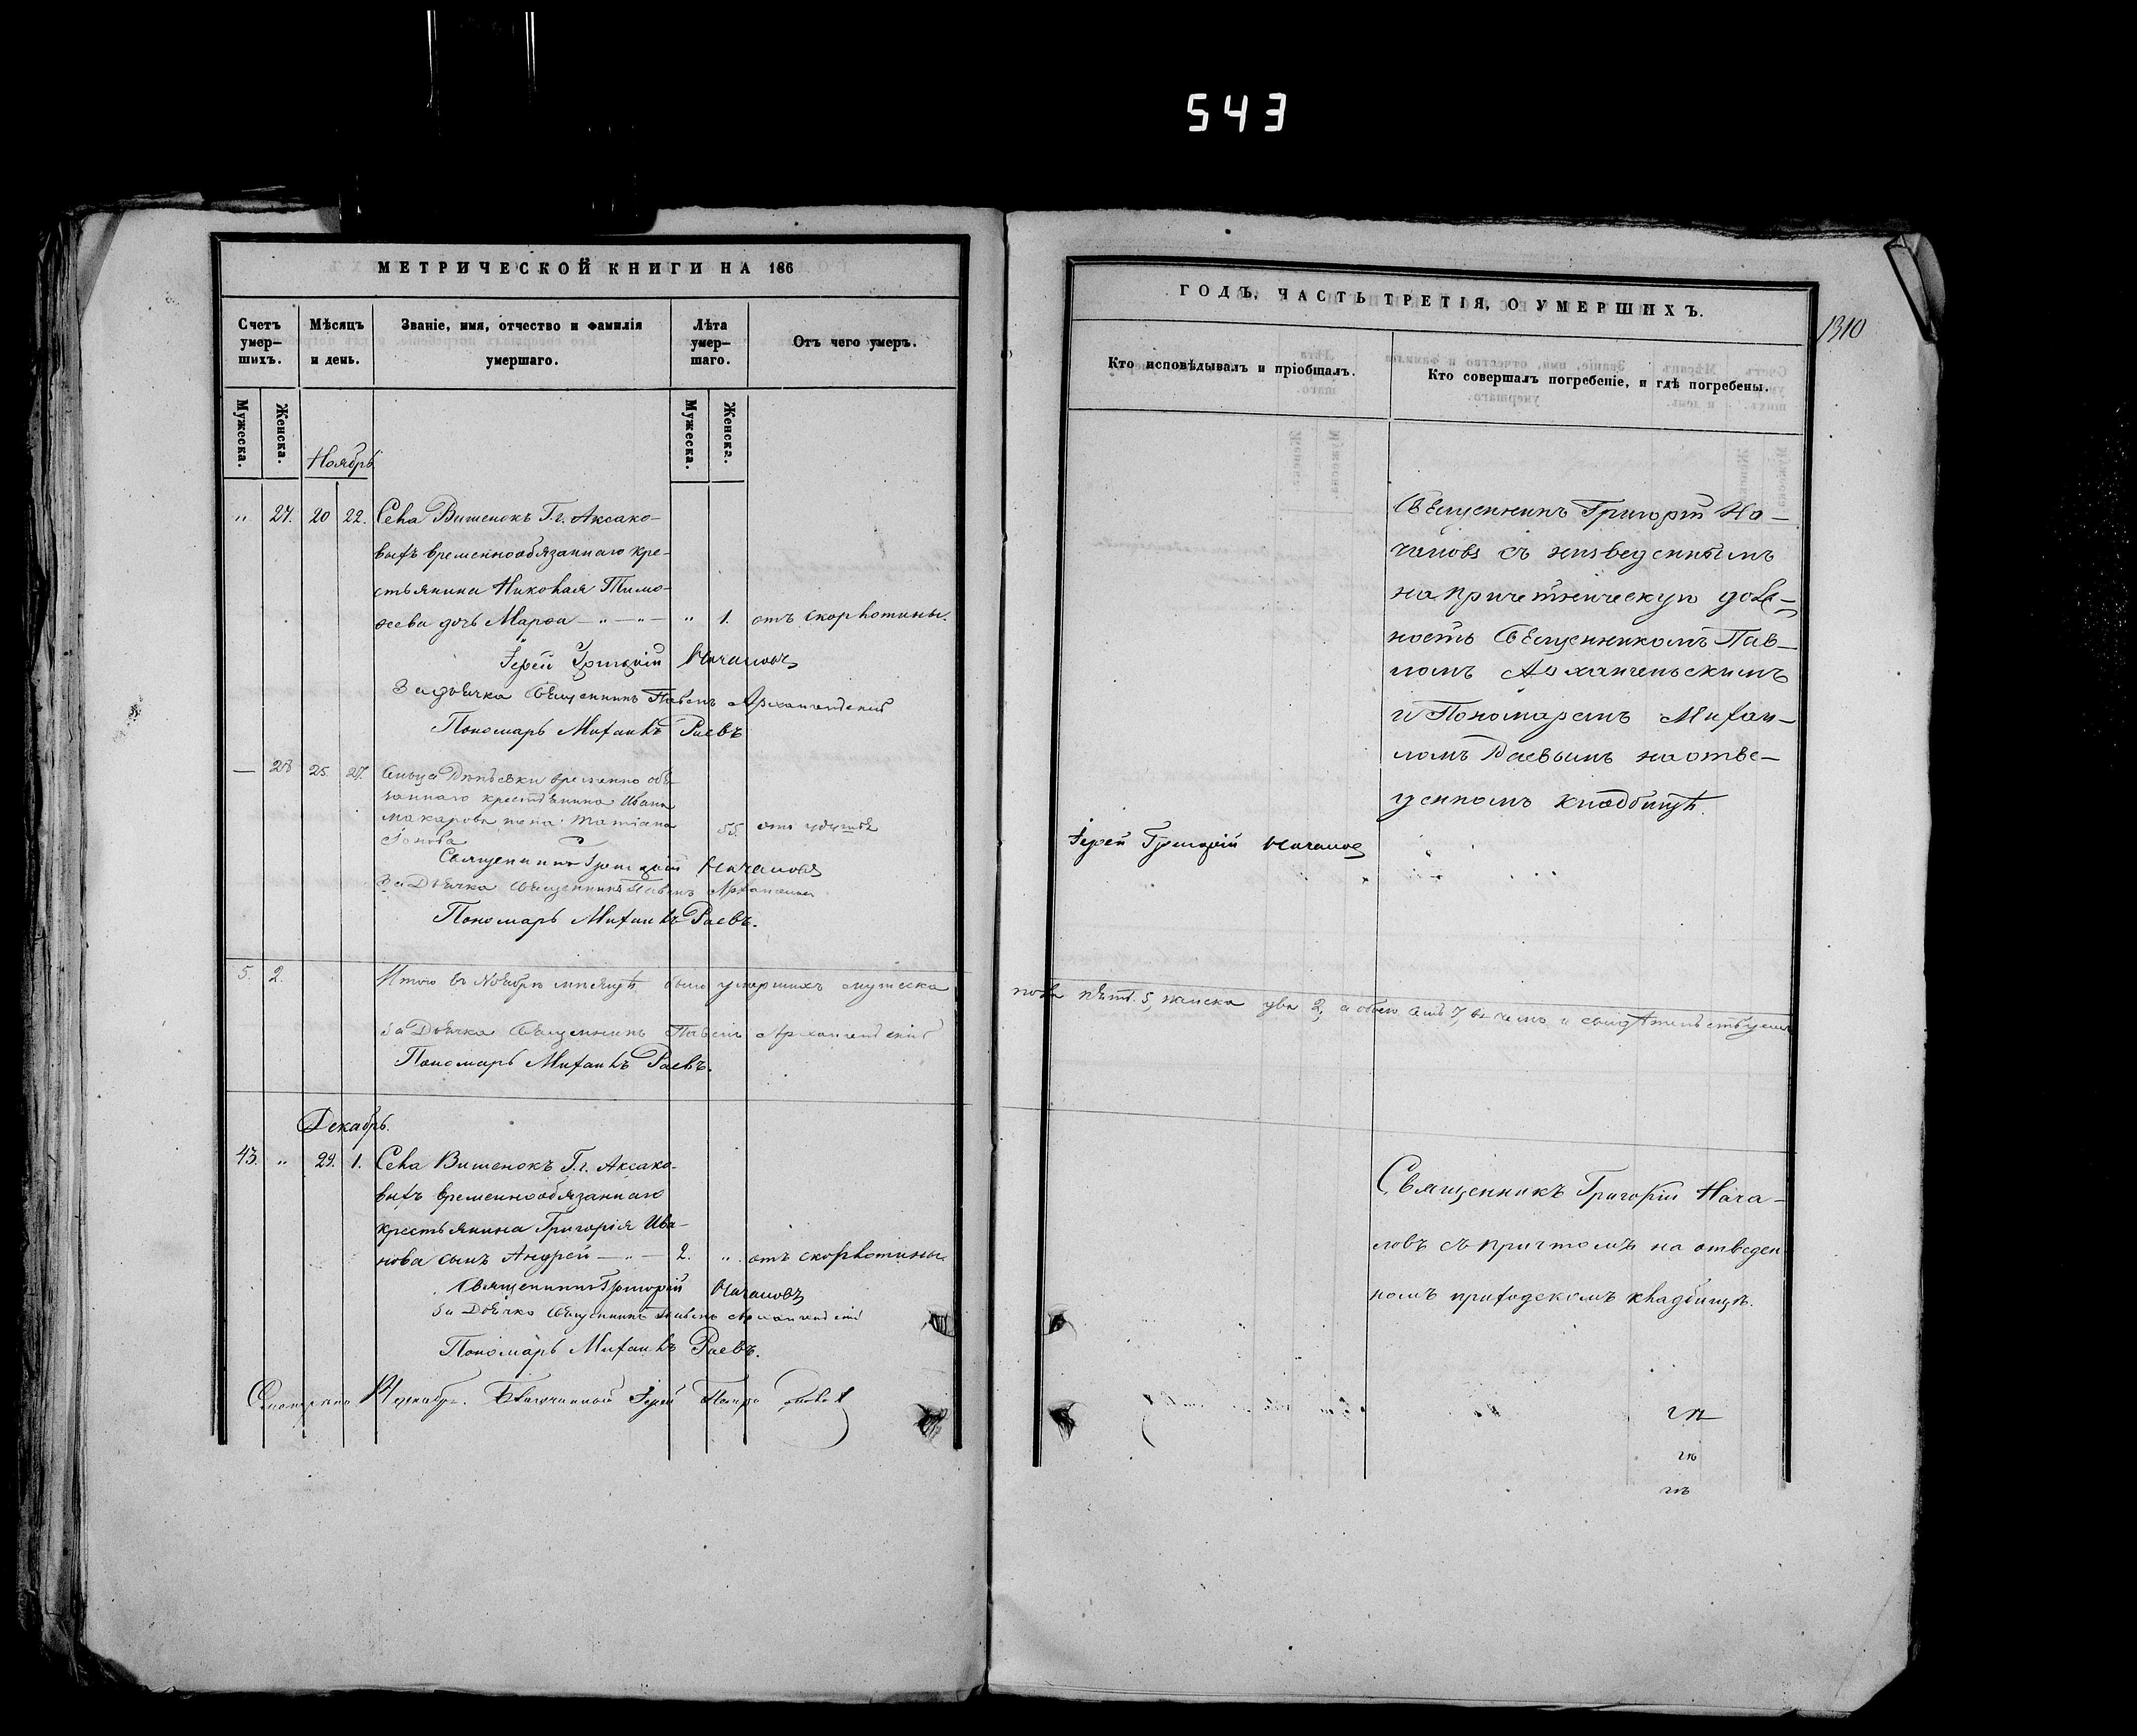 543
МЕТРИЧЕСКОЙ КНИГИ НА 186
Счетъ умер—шихъ.
Мѣсяцъ и день.
Званіе, имя, отчество и фамилія умершаго.
Лѣта умер—шаго.
Отъ чего умеръ.
Мужеска.
Женска.
Мужеска.
Женска.
Ноябрь
„ 27. 20 22. Села Вишенокъ Г. г. Аксако-
выхъ временнообязаннаго кре-
стьянина Николая Тимо-
ѳеева дочь Марѳа — „ — „ — „ 1. отъ скорлотины.
Іерей Григорій Началовъ
За дьячка Священникъ Павелъ Архангельскій
Пономарь Михаилъ Раевъ
— 28 25. 27. временно обя-
заннаго крестьянина Ивана
Макарова жена Татіана
55. отъ удушья
Священникъ Григорій Началовъ
За Дьячка Священникъ Павелъ
Пономарь Михаилъ Раевъ.
5. 2. Итого въ Ноябрѣ мѣсяцѣ было умершихъ мужеска
За Дьячка Священникъ Павелъ Архангельскій
Пономарь Михаилъ Раевъ.
Декабрь.
43. „ 29. 1. Села Вишенокъ Г. г. Аксако-
выхъ временнообязаннаго
крестьянина Григорія Ива-
нова сынъ Андрей — „ — 2. „ отъ скорлотины.
Священникъ Григорій Началовъ
За Дьячка Священникъ Павелъ Архангельскій
Пономарь Михаилъ Раевъ.
Благочинный Іерей Петръ
ГОДЪ, ЧАСТЬ ТРЕТІЯ, О УМЕРШИХЪ.
1310
Кто исповѣдывалъ и пріобщалъ.
Кто совершалъ погребеніе, и гдѣ погребены.
Священникъ Григорій На-
чаловъ съ низведеннымъ
на причетническую долж-
ность Священникомъ Пав-
ломъ Архангельскимъ
и Пономаремъ Михаи-
ломъ Раевымъ на отве-
денномъ кладбищѣ.
Іерей Григорій Началовъ
пола пять 5, женска два 2, а обоего семь 7, въ чемъ и свидѣтельствуемъ
Священникъ Григорій Нача-
ловъ съ причтомъ на отведен
номъ приходскомъ кладбищѣ.